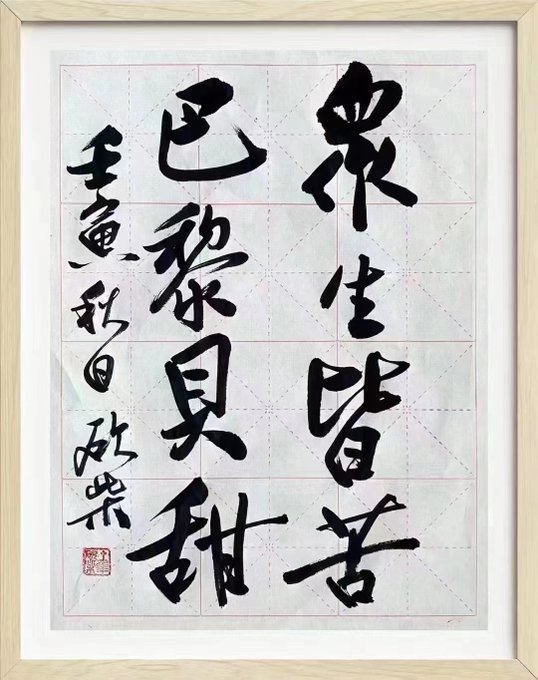 眾生皆苦
巴黎貝甜
壬寅秋日 砍柴